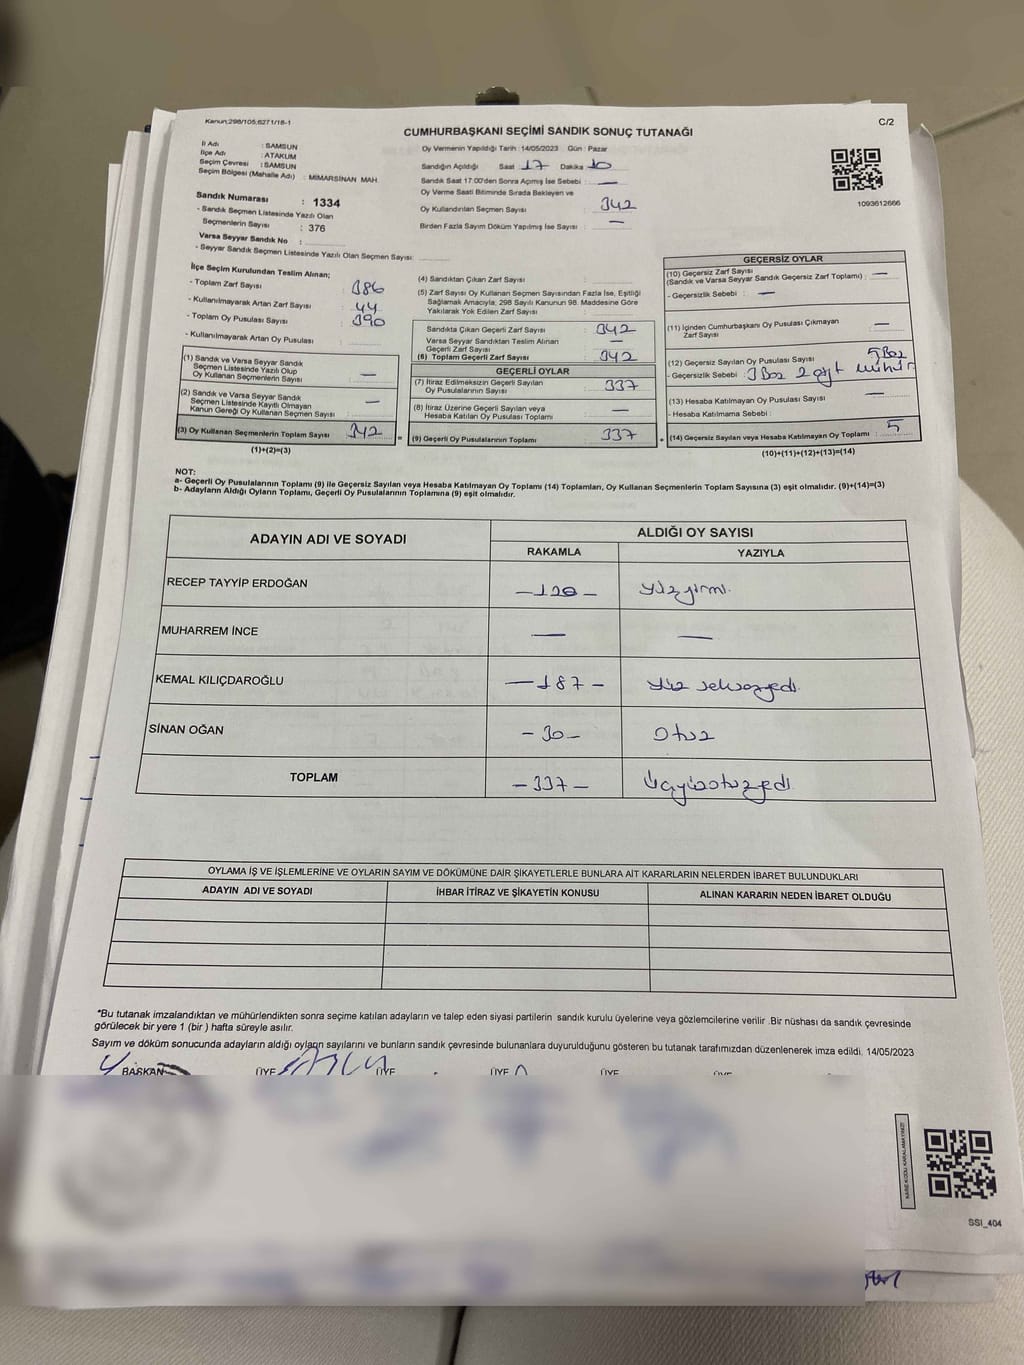 Kanun:298/105,6271/18-1
C/2
CUMHURBAŞKANI SEÇİMİ SANDIK SONUÇ TUTANAĞI
İl Adı : SAMSUN
İlçe Adı : ATAKUM
Seçim Çevresi : SAMSUN
Seçim Bölgesi (Mahalle Adı) : MİMARSİNAN MAH.
Sandık Numarası : 1334
- Sandık Seçmen Listesinde Yazılı Olan
Seçmenlerin Sayısı : 376
Varsa Seyyar Sandık No :
- Seyyar Sandık Seçmen Listesinde Yazılı Olan Seçmen Sayısı:
Oy Vermenin Yapıldığı Tarih :14/05/2023 Gün : Pazar
Sandığın Açıldığı Saat :17 Dakika :10
Sandık Saat 17:00'den Sonra Açımış İse Sebebi : —
Oy Verme Saati Bitiminde Sırada Bekleyen ve
Oy Kullandırılan Seçmen Sayısı : 342
Birden Fazla Sayım Döküm Yapılmış İse Sayısı : —
1093612666
İlçe Seçim Kurulundan Teslim Alınan;
- Toplam Zarf Sayısı : 386
- Kullanılmayarak Artan Zarf Sayısı : 44
- Toplam Oy Pusulası Sayısı : 390
- Kullanılmayarak Artan Oy Pusulası :
(1) Sandık ve Varsa Seyyar Sandık
Seçmen Listesinde Yazılı Olup
Oy Kullanan Seçmenlerin Sayısı : —
(2) Sandık ve Varsa Seyyar Sandık
Seçmen Listesinde Kayıtlı Olmayan
Kanun Gereği Oy Kullanan Seçmen Sayısı : —
(3) Oy Kullanan Seçmenlerin Toplam Sayısı : 342
(1)+(2)=(3)
(4) Sandıktan Çıkan Zarf Sayısı :
(5) Zarf Sayısı Oy Kullanan Seçmen Sayısından Fazla İse, Eşitliği
Sağlamak Amacıyla, 298 Sayılı Kanunun 98. Maddesine Göre
Yakılarak Yok Edilen Zarf Sayısı :
Sandıkta Çıkan Geçerli Zarf Sayısı : 342
Varsa Seyyar Sandıktan Teslim Alınan
Geçerli Zarf Sayısı : —
(6) Toplam Geçerli Zarf Sayısı : 342
GEÇERLİ OYLAR
(7) İtiraz Edilmeksizin Geçerli Sayılan
Oy Pusulalarının Sayısı : 337
(8) İtiraz Üzerine Geçerli Sayılan veya
Hesaba Katılan Oy Pusulası Toplamı : —
= (9) Geçerli Oy Pusulalarının Toplamı : 337
GEÇERSİZ OYLAR
(10) Geçersiz Zarf Sayısı
(Sandık ve Varsa Seyyar Sandık Geçersiz Zarf Toplamı) : —
- Geçersizlik Sebebi : —
(11) İçinden Cumhurbaşkanı Oy Pusulası Çıkmayan
Zarf Sayısı : —
(12) Geçersiz Sayılan Oy Pusulası Sayısı : 5 Boz
- Geçersizlik Sebebi : 3 Boz 2 çift mühür
(13) Hesaba Katılmayan Oy Pusulası Sayısı : —
- Hesaba Katılmama Sebebi :
+ (14) Geçersiz Sayılan veya Hesaba Katılmayan Oy Toplamı : 5
(10)+(11)+(12)+(13)=(14)
NOT:
a- Geçerli Oy Pusulalarının Toplamı (9) ile Geçersiz Sayılan veya Hesaba Katılmayan Oy Toplamı (14) Toplamları, Oy Kullanan Seçmenlerin Toplam Sayısına (3) eşit olmalıdır. (9)+(14)=(3)
b- Adayların Aldığı Oyların Toplamı, Geçerli Oy Pusulalarının Toplamına (9) eşit olmalıdır.
ADAYIN ADI VE SOYADI
ALDIĞI OY SAYISI
RAKAMLA YAZIYLA
RECEP TAYYİP ERDOĞAN —120— yüzyirmi.
MUHARREM İNCE — —
KEMAL KILIÇDAROĞLU —187— yüz seksenyedi.
SİNAN OĞAN -30- Otuz
TOPLAM -337- Üçyüzotuzyedi
OYLAMA İŞ VE İŞLEMLERİNE VE OYLARIN SAYIM VE DÖKÜMÜNE DAİR ŞİKAYETLERLE BUNLARA AİT KARARLARIN NELERDEN İBARET BULUNDUKLARI
ADAYIN ADI VE SOYADI İHBAR İTİRAZ VE ŞİKAYETİN KONUSU ALINAN KARARIN NEDEN İBARET OLDUĞU
*Bu tutanak imzalandıktan ve mühürlendikten sonra seçime katılan adayların ve talep eden siyasi partilerin sandık kurulu üyelerine veya gözlemcilerine verilir .Bir nüshası da sandık çevresinde
görülecek bir yere 1 (bir ) hafta süreyle asılır.
Sayım ve döküm sonucunda adayların aldığı oyların sayılarını ve bunların sandık çevresinde bulunanlara duyurulduğunu gösteren bu tutanak tarafımızdan düzenlenerek imza edildi. 14/05/2023
BAŞKAN ÜYE ÜYE ÜYE ÜYE ÜYE
KARE KODU KARALAMAYINIZ!
SSI_404